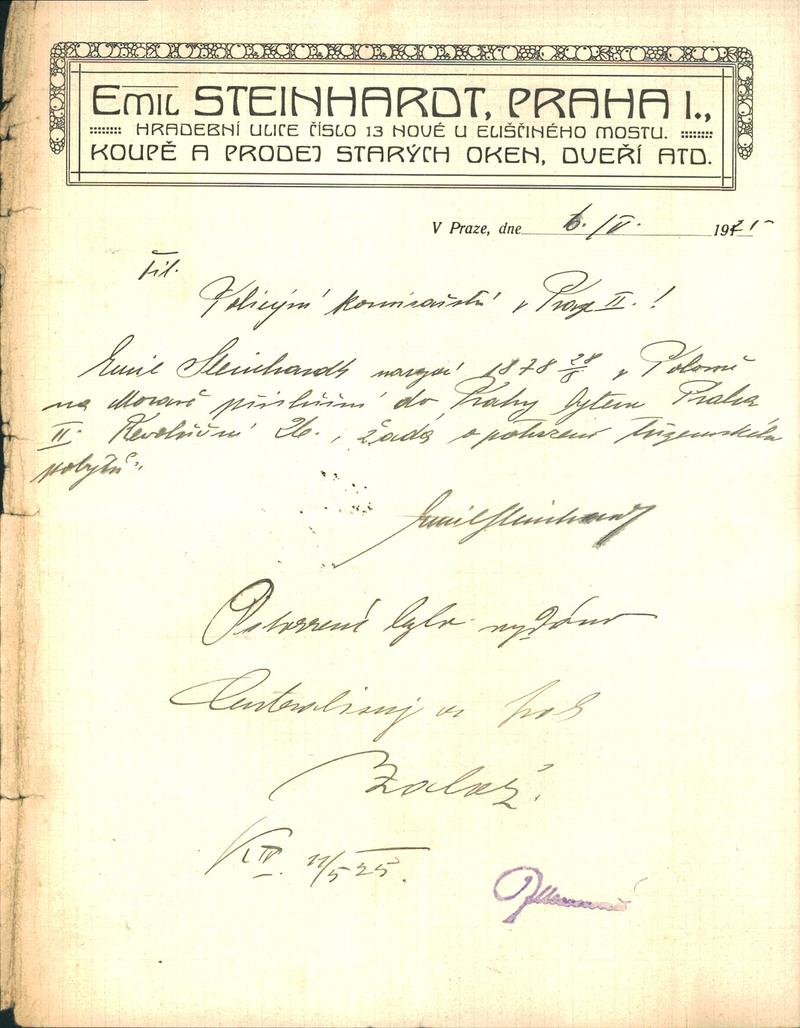 Emil STEINHARDT, PRAHA I.,
HRADEBNÍ ULICE ČÍSLO 13 NOVÉ U ELIŠČINÉHO MOSTU.
KOUPĚ A PRODEJ STARÝCH OKEN, DVEŘÍ ATD.
V Praze, dne 6./V. 192
Tit.
Policejní komisařství v Praze II.!
Emil Steinhardt narozen 1878 28/8 v Polomě
na Moravě příslušní do Prahy bytem Praha
II. Revoluční 26., žádá o potvrzení tuzemského
pobytu.
Emil Steinhardt
Potvrzení bylo vydáno
Založ.
11/5 25.